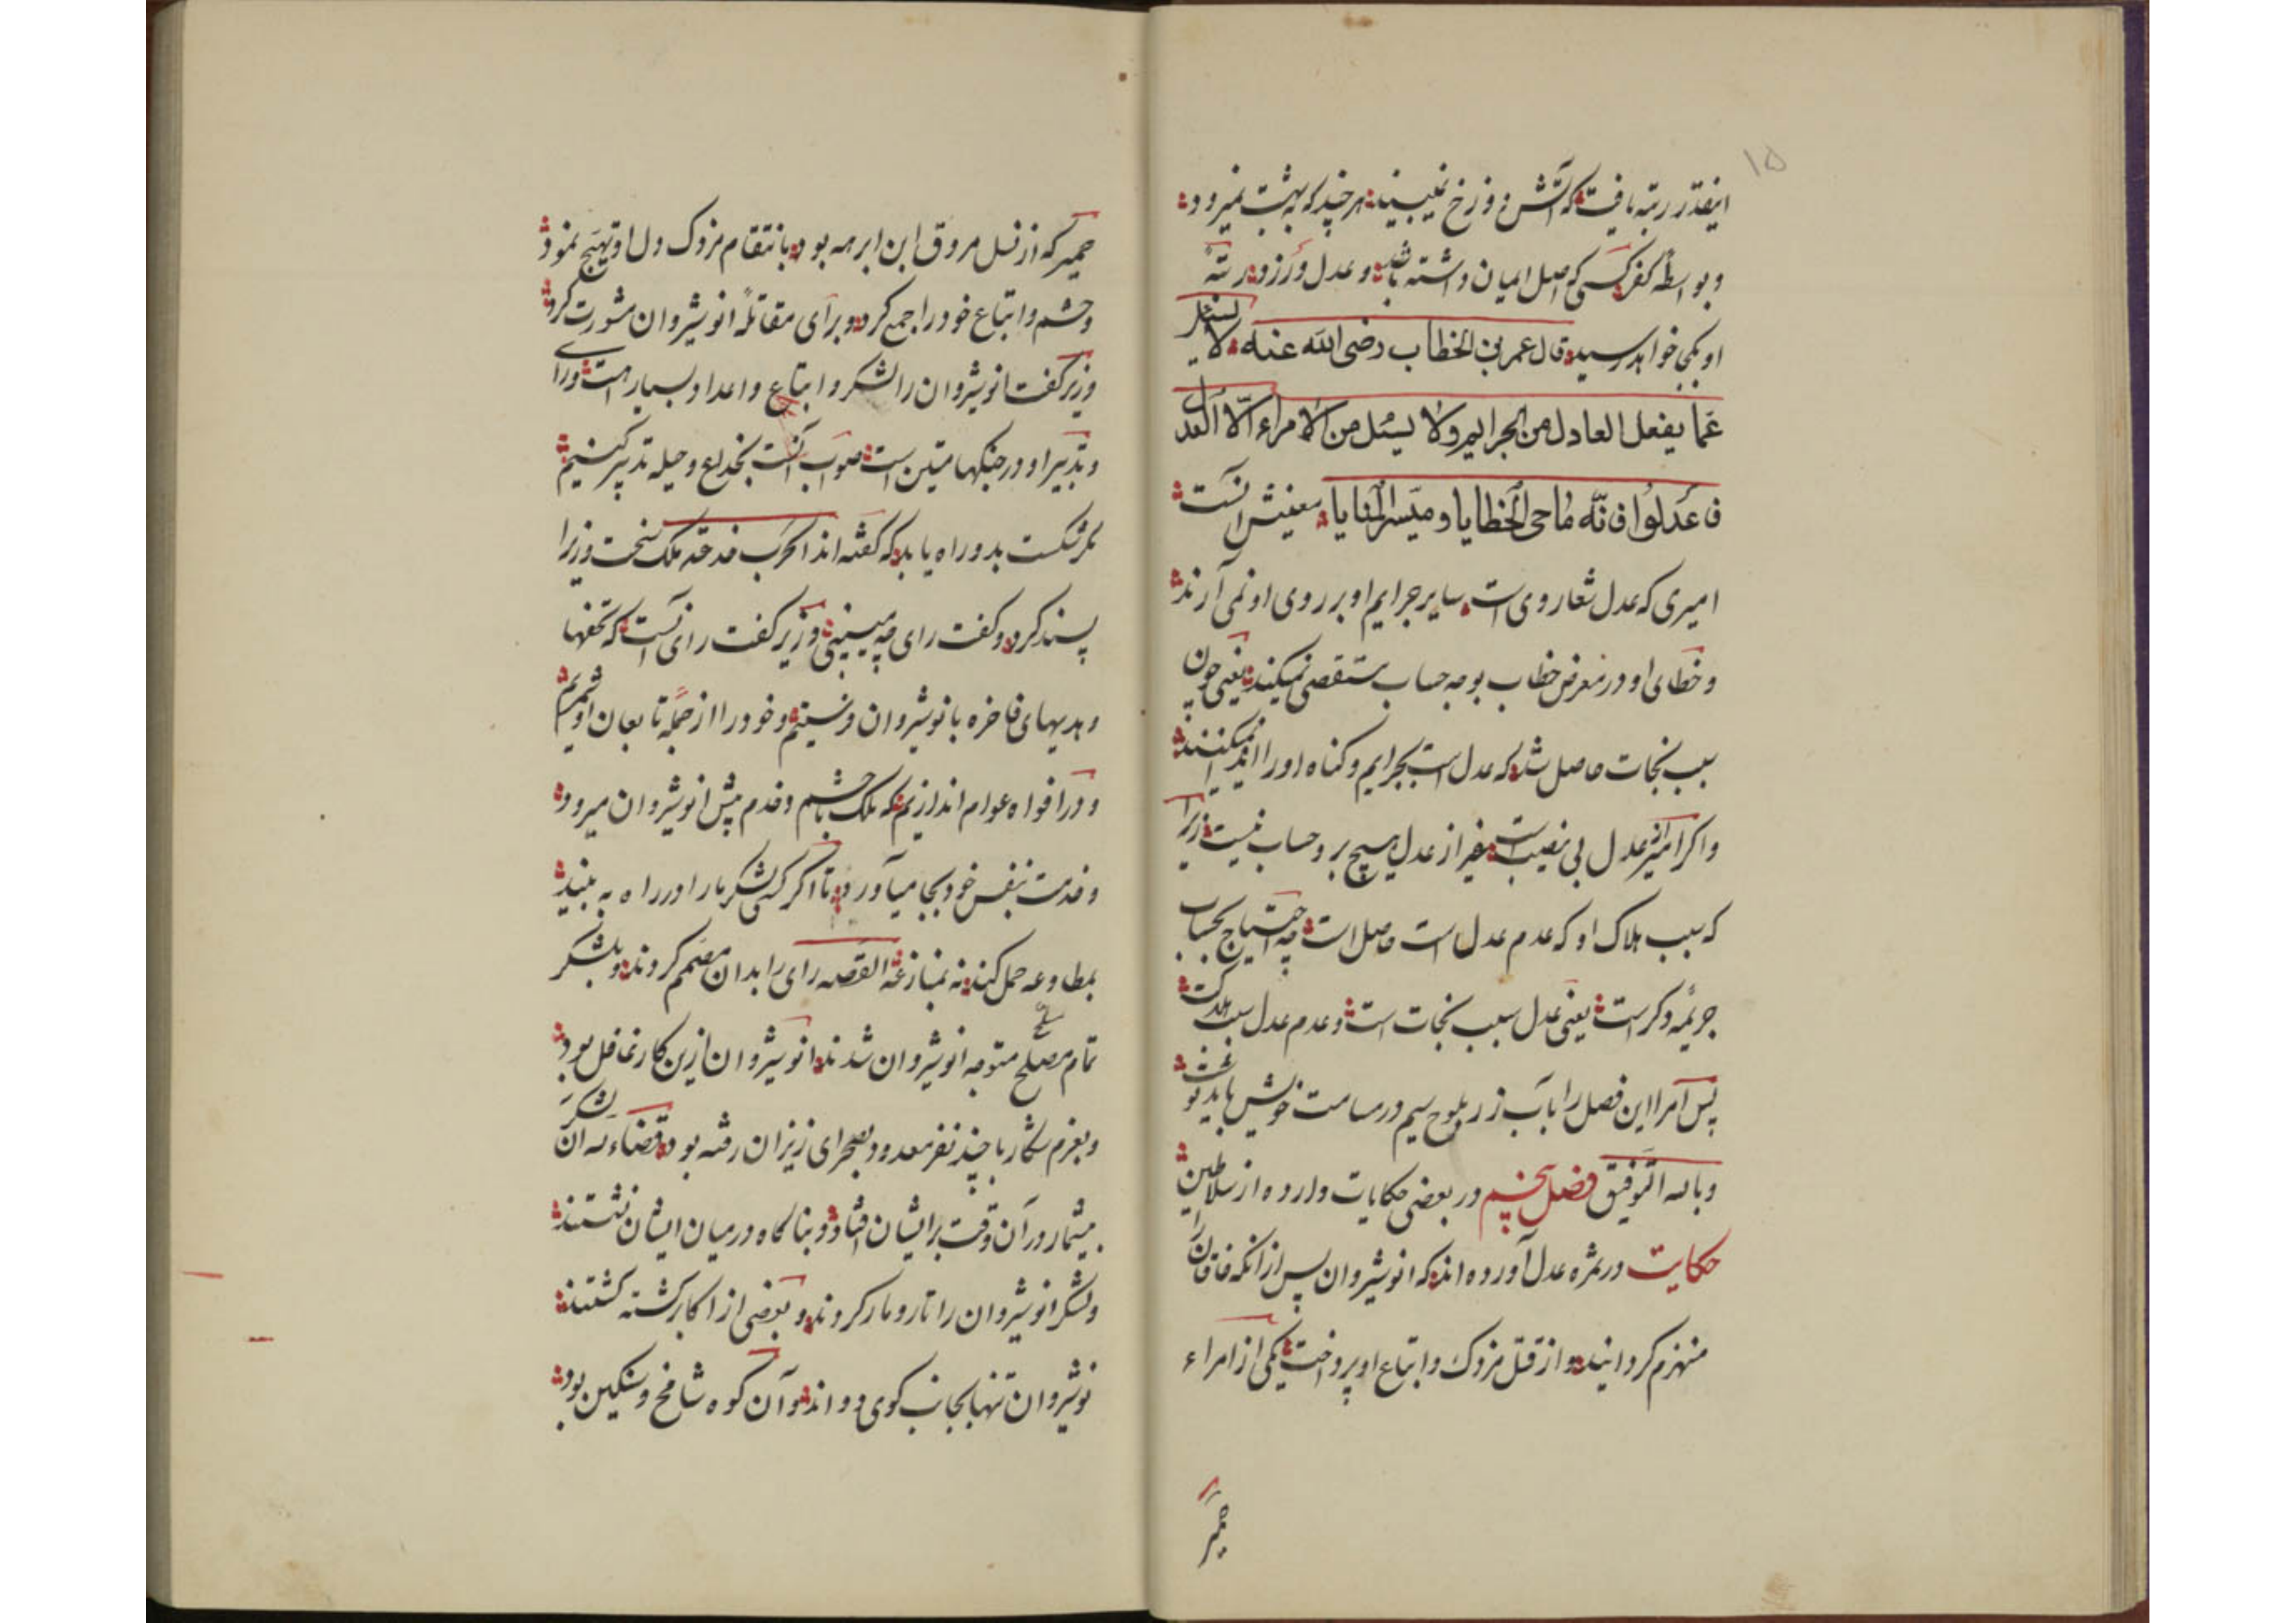 ۱۵
اینقدر رتبه یافت که آتش دوزخ نمیبیند هر چند که بهشت نمیرود
و بواسطه کفر کسی که اصل ایمان داشته باشد و عدل ورزد رتبهٔ
او بکجا خواهد رسید قال عمر بن الخطاب رضی الله عنه لا یسئل
عما یفعل العادل من الجرایم ولا یسئل من الامراء الّا العدل
فاعدلوا فانّه ماحی الخطایا و میسر المنایا معنیش آنست
امیری که عدل شعار وی است سایر جرایم او بر روی او نمی آرند
و خطای او در معرض خطاب بوجه حساب مستقصی نمیکند یعنی چون
سبب نجات حاصل شد که عدل است بجرایم و کناه او را
واکر امیر از عدل بی نصیب است بغیر از عدل هیچ بر و حساب نیست زیرا
که سبب هلاک او که عدم عدل است حاصل است چه احتیاج بحساب
جریمه دکر است یعنی عدل سبب نجات است و عدم عدل سبب هلاکت
پس امرا این فصل را بآب زر بلوح سیم در مسامت خویش باید نوشت
و بالله التوفیق فصل پنجم در بعضی حکایات وارده از سلاطین
حکایت در ثمره عدل آورده اند که انوشیروان پس از انکه خاقان را
منهزم کردانید و از قتل مزدک و اتباع او پرداخت یکی از امراء
حمیر
حمیر که از نسل مروق ابن ابرهه بود بانتقام مزدک دل او تهیج نمود
و حشم و اتباع خود را جمع کرد و برای مقاتلهٔ انوشیروان مشورت کرد
وزیر گفت انوشیروان را لشکر و اتباع و اعداد بسیار است و رای
و تدبیر او در جنکها متین است صواب آنست بخداع و حیله تدبیر کنیم
مکر شکست بدو راه یابد که کفته اند الحرب خدعة ملک سخن وزیر را
پسند کرد و کفت رای چه میبینی وزیر کفت رای آنست که تحفها
و هدیهای فاخره بانوشیروان فرستیم و خود را از جمله تابعان او شمریم
و در افواه عوام اندازیم که ملک با حشم و خدم پیش انوشیروان میرود
و خدمت بنفس خود بجا میآورد تا اکر کسی لشکر ما را در راه به بیند
بمطاوعه حمل کند نه بمنازعه القصه رای را بدان مصمم کردند و بلشکر
تمام مصلح مسلح متوجه انوشیروان شدند انوشیروان ازین کار غافل بود
و بعزم شکار با چند نفر معدود بصحرای زیزان رفته بود قضاء که آن لشکر
بیشمار در آن وقت بر ایشان افتاد و بناکاه در میان ایشان نشستند
ولشکر انوشیروان را تارومار کردند و بعضی از اکابر کشته کشتند
نوشیروان تنها بجانب کوی دواند و آن کوه شامخ و سنکین بود